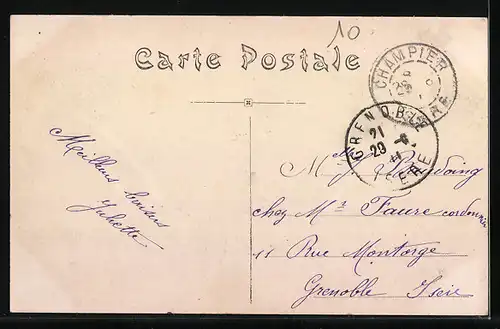 10
Carte Postale
CHAMPIER
GRENOBLE
21
29 -6
Meilleurs baisers
Juliette
chez Mr Faure cordonnier
11 Rue Montorge
Grenoble Isère